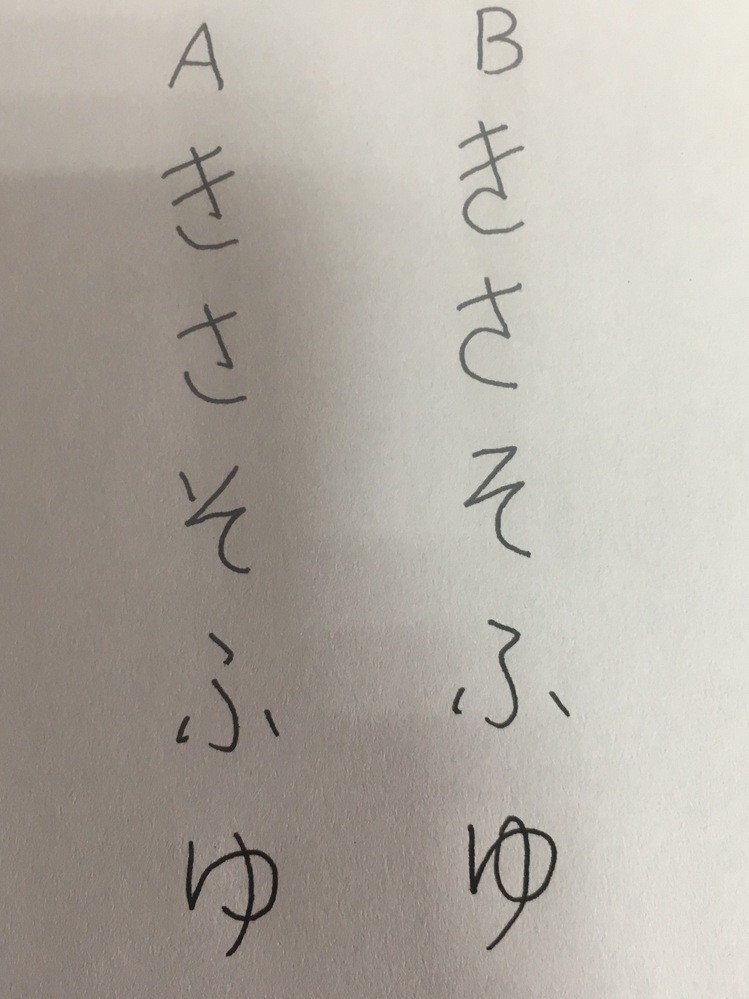 A B
き き
さ さ
そ そ
ふ ふ
ゆ ゆ